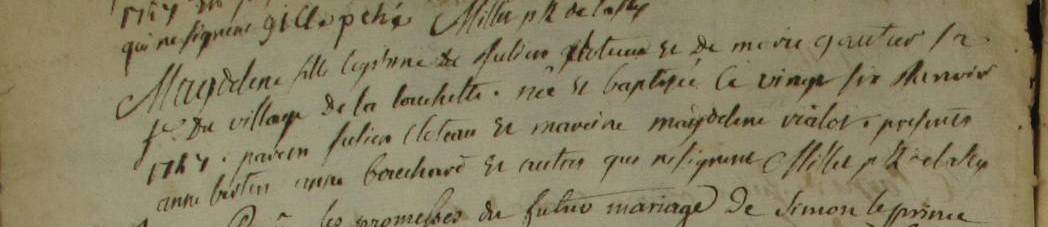 qui ne signent gille pché Millet p^r de
Magdelene fille legitime de Julien Cloteau et de marie gautier sa
f^e du village de la touchette. née et baptisée le vingt six
1757. parein Julien Cloteau et mareine magdelene vialot. presents
anne bertin anne bouchard et autres qui ne signent Millet p^r
les promesses du futur mariage de Simon leprince